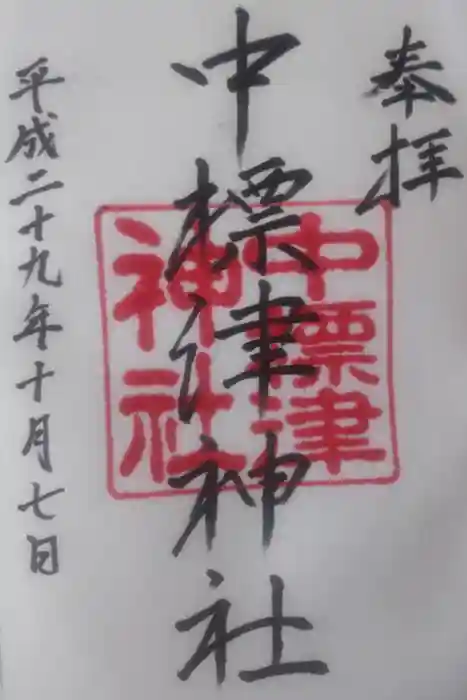 奉拝
中標津神社
中標津
神社
平成二十九年十月七日